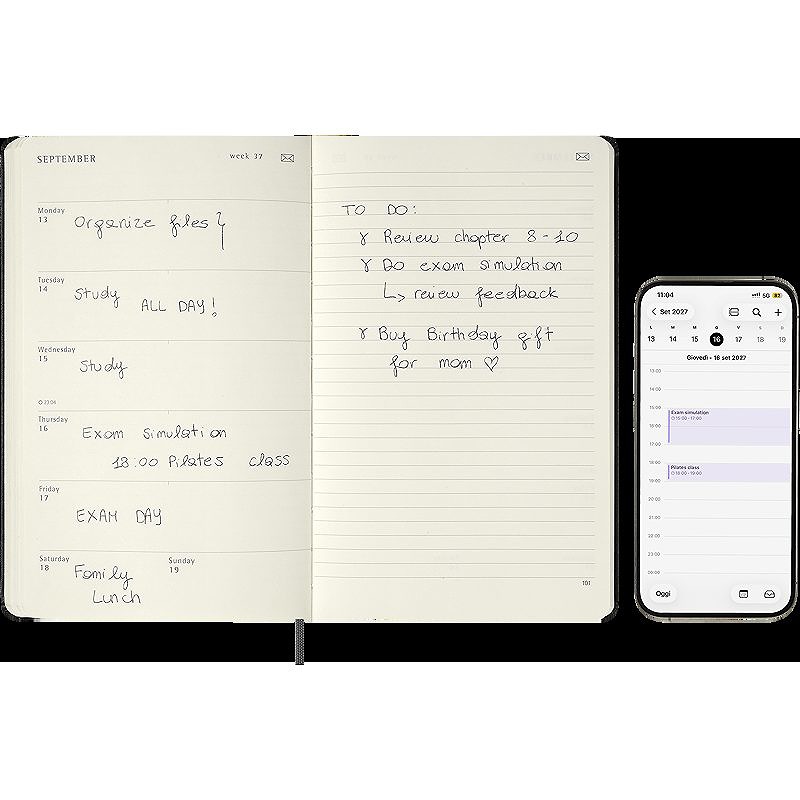 SEPTEMBER week 37
Monday
13
Organize files
Tuesday
14
Study
ALL DAY!
Wednesday
15
Study
Thursday
16
Exam simulation
18:00 Pilates class
Friday
17
EXAM DAY
Saturday
18
Family
Lunch
Sunday
19
TO DO:
Review chapter 8-10
Do exam simulation
↳ review feedback
Buy Birthday gift
for mom ♡
101
11:04 5G 82
Set 2027
L M M G V S D
13 14 15 16 17 18 19
Giovedì - 16 set 2027
13:00
14:00
15:00
Exam simulation
15:00 - 17:00
16:00
17:00
18:00
Pilates class
18:00 - 19:00
19:00
20:00
21:00
22:00
23:00
Oggi